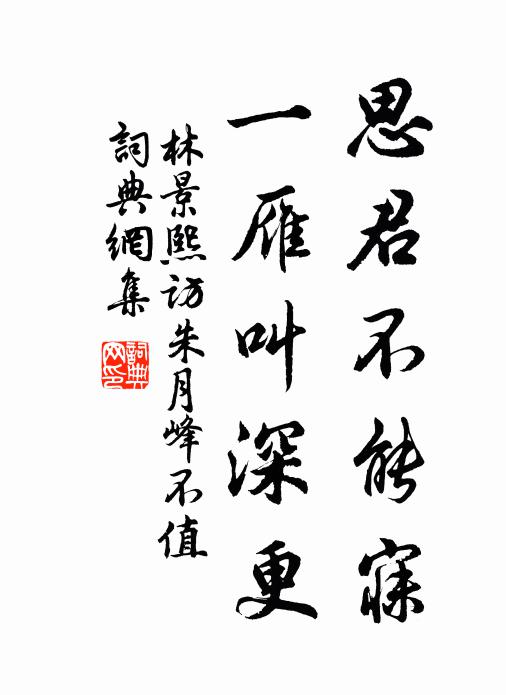 思君不能寐
一雁叫深更
林景熙訪朱月峰不值
詞典網集
詞典網印